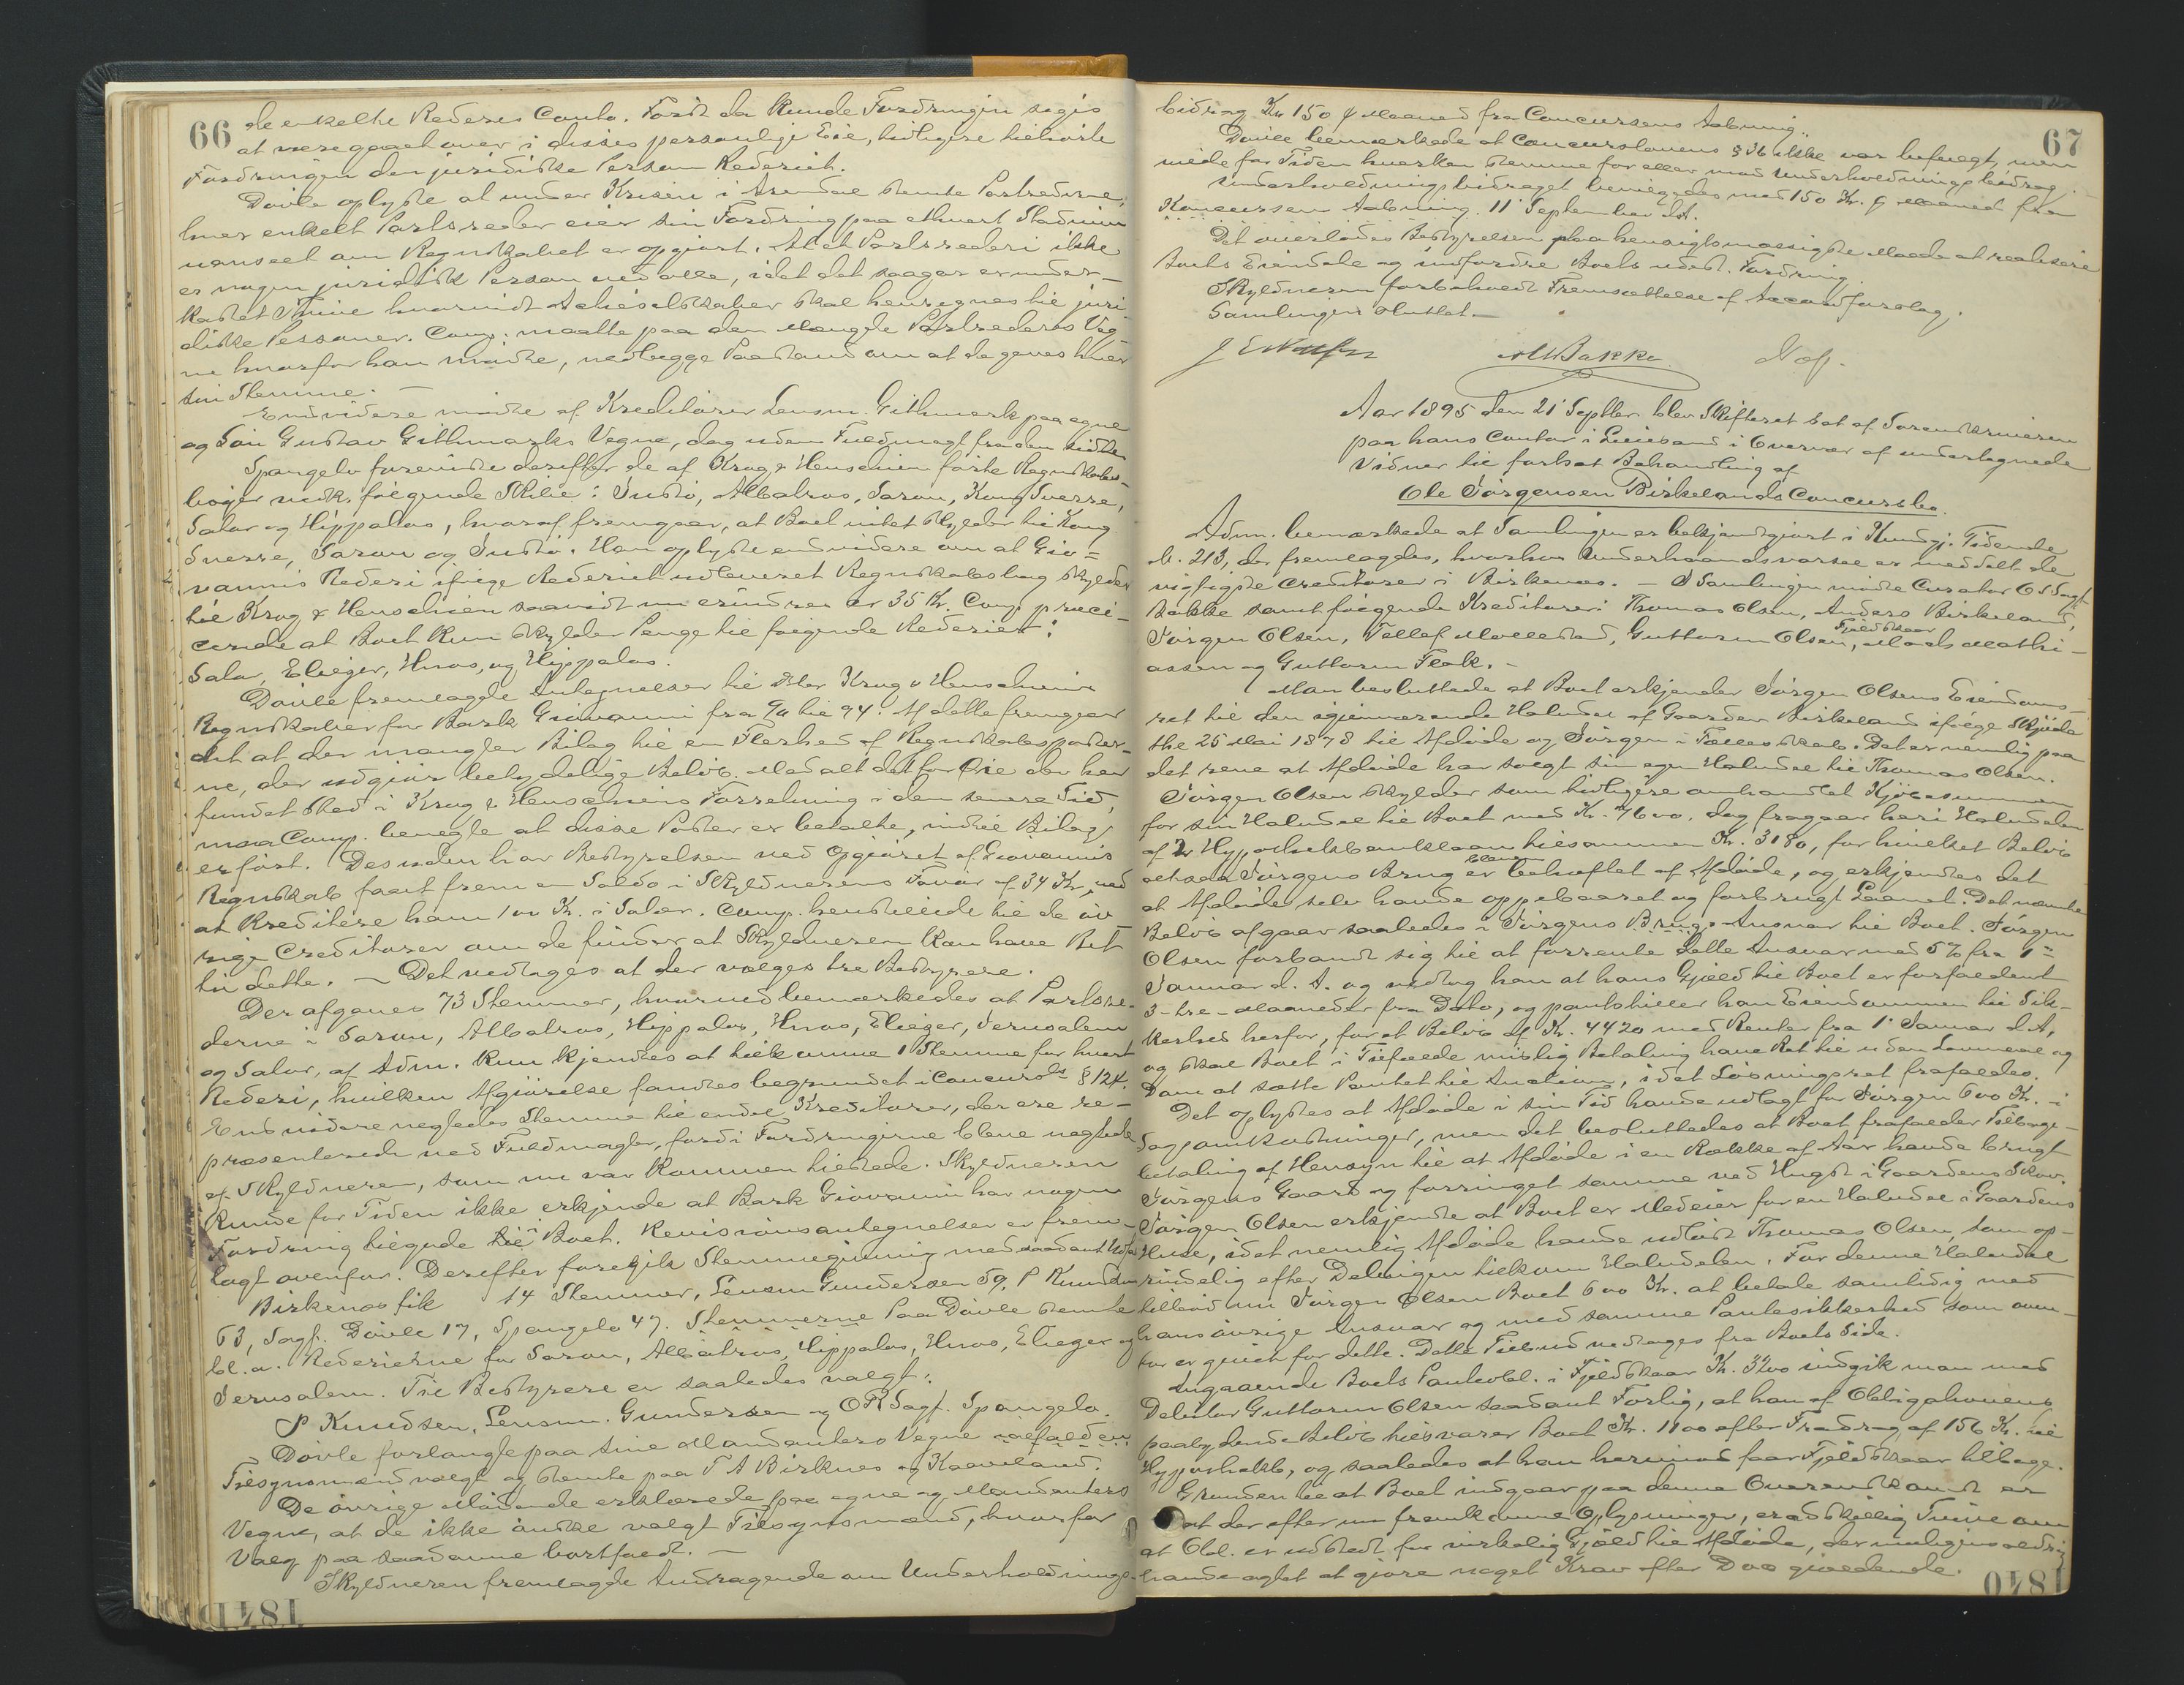 66
de enkelte Rederes Conto. Først da kunde Fordringen siges
at være gaaet over i disses personlige Eie, tidligere tilhørte
Fordringen den juridiske Person Rederiet.
Døvle oplyste at under Krisen i Arendal stemte Partrederne,
hver enkelt Partsreder eier sin Fordring paa ethvert Stadium
uanseet om Regnskabet er opgjort. At et Partsrederi ikke
er nogen juridisk Person ved alle, idet det saagar er under-
kastet Tvivl hvorvidt Actieselskaber skal henregnes til juri-
diske Personer. Comp. maatte paa den Mængde Partrederes Veg-
ne hvorfor han mødte, nedlægge Paastand om at de gaves hver
sin Stemme. —
Endvidere mødte af Kreditorer Lensm. Githmark paa egne
og Søn Gustav Githmarks Vegne, dog uden Fuldmagt fra den sidste
Spangelo foreviste derefter de af Krog & Henschien førte Regnskabs-
bøger vedk. følgende Skibe: Justo, Albatros, Saron, Kong Sverre,
Salor og Hippalos, hvoraf fremgaar, at Boet intet skylder til Kong
Sverre, Saron og Justo. Han oplyste endvidere om at Gio-
vannis Rederi ifølge Rederiet udleveret Regnskabsbog skylder
til Krog & Henschien saavidt nu erindres er 35 Kr. Comp. præci-
cerede at Boet kun skylder Penge til følgende Rederier:
Salor, Elieger, Hvos, og Hippalos.
Døvle fremlagde Antegnelser til Krog & Henschiens
Regnskaber for Bark Giovanni fra 90 til 94. Af dette fremgaar
det at der mangler Bilag til en Flerhed af Regnskabsposter-
ne, der udgjør betydelige Beløb. Med alt det for Øie der har
fundet Sted i Krog & Henschiens Forretning i den senere Tid,
maa Comp. benegte at disse Poster er betalte, indtil Bilag
er ført. Desuden har Bestyrelsen ved Opgjøret af Giovannis
Regnskab faaet frem en Saldo i Skyldnerens Favør af 34 Kr., ved
at kreditere ham 100 Kr. i Salær. Comp. henstillede til de øv-
rige Creditorer om de finder at Skyldneren kan have Ret
til dette. — Det vedtages at der vælges tre Bestyrere.
Der afgaves 73 Stemmer, hvorved bemærkedes at Partsre-
derne i Saron, Albatros, Hippalos, Hvos, Elieger, Jerusalem
og Salor, af Adm. kun kjendtes at tilkomme 1 Stemme for hvert
Rederi, hvilken Afgjørelse fandtes begrundet i Concursl. § 124.
Endvidere negtedes Stemme til endel Kreditorer, der ere re-
præsenterede ved Fuldmagter, fordi Fordringerne bleve negtede
af Skyldneren, som nu var kommen tilstede. Skyldneren
kunde for Tiden ikke erkjende at Bark Giovanni har nogen
Fordring tilgode til Boet. Revisionsantegnelser er frem-
lagt ovenfor. Derefter foregik Stemmegivning med saadant Udfald
Birkenes fik 14 Stemmer, Lensm Gundersen 59, P Knudsen
63, Sagf. Døvle 17, Spangelo 47. Stemmerne paa Døvle stemte
bl. a. Rederierne for Saron, Albatros, Hippalos, Hvos, Elieger og
Jerusalem. Til Bestyrere er saaledes valgt:
P Knudsen, Lensm. Gundersen og ORSagf. Spangelo.
Døvle forlangte paa sine Mandanters Vegne
Tilsynsmænd valgt og stemte paa T A Birknes og Kaaveland.
De øvrige Mødende erklærede paa egne og Mandanters
Vegne, at de ikke ønske valgt Tilsynsmænd, hvorfor
Valg paa saadanne bortfaldt. —
Skyldneren fremlagde Andragende om Underholdnings-
67
bidrag Kr 150 pr Maaned fra Concursens Aabning.
Døvle bemærkede at Concurslovens § 36 ikke var befulgt, men
vilde for Tiden hverken stemme for eller mod Underholdningsbidrag.
Underholdningsbidraget bevilgedes med 150 Kr. pr Maaned fra
Koncursens Aabning. 11 September d.A.
Det overlodes Bestyrelsen paa hensigtsmæssigste Maade at realisere
Boets Eiendele og indfordre Boets udest. Fordring.
Skyldneren forbeholdt Fremsættelse af Accordforslag.
Samlingen sluttet. —
Bakke
Aar 1895 den 21 Septbr. blev Skifteret sat af Sorenskriveren
paa hans Contor i Lillesand i Overvær af undertegnede
Vidner til fortsat Behandling af
Ole Jørgensen Birkelands Concursbo.
Adm. bemærkede at Samlingen er bekjendtgjort i Kundgj. Tidende
No. 213, der fremlagdes, hvorhos Underhaandsvarsel er meddelt de
vigtigste Creditorer i Birkenes. — I Samlingen mødte Curator ORSagf
Bakke samt følgende Kreditorer: Thomas Olsen, Anders Birkeland,
Jørgen Olsen, Tellef Mollestad, Guttorm Olsen Fjeldskaar, Mads Mathi-
assen og Guttorm Flak. —
Man besluttede at Boet erkjender Jørgen Olsens Eiendoms-
ret til den igjenværende Halvdel af Gaarden Birkeland ifølge Skjøde
thl 25 Mai 1878 til Afdøde og Jørgen i Fællesskab. Det er nemlig paa
det rene at Afdøde har solgt sin egen Halvdel til Thomas Olsen.
Jørgen Olsen skylder som tidligere omhandlet Kjøbesummen
for sin Halvdel til Boet med Kr. 4600, dog fragaar heri Halvdelen
af 2 Hypotheksbanklaan tilsammen Kr. 3180, for hvilket Beløb
ogsaa Jørgens Brug er bleven behæftet af Afdøde, og erkjendtes det
at Afdøde selv havde oppebaaret og forbrugt Laanet. Det nævnte
Beløb afgaar saaledes i Jørgens Brugs Ansvar til Boet. Jørgen
Olsen forbandt sig til at forrente dette Ansvar med 5 % fra 1ste
Januar d. A. og vedtog han at hans Gjæld til Boet er forfaldent
3 - tre - Maaneder fra Dato, og pantstiller han Eiendommen til Sik-
kerhed herfor, for et Beløb af Kr. 4420 med Renter fra 1 Januar d.A,
og skal Boet i Tilfælde mislig Betaling have Ret til uden Lovmaal og
Dom at sætte Pantet til Auction, idet Løsningsret frafaldes.
Det oplystes at Afdøde i sin Tid havde udlagt for Jørgen 600 Kr. i
Sagsomkostninger, men det besluttedes at Boet frafalder Tilbage-
betaling af Hensyn til at Afdøde i en Række af Aar havde brugt
Jørgens Gaard og forringet samme ved Hugst i Gaardens Skov.
Jørgen Olsen erkjendte at Boet er Medeier for en Halvdel i Gaardens
Huse, idet nemlig Afdøde havde udløst Thomas Olsen, som op-
rindelig efter Delingen tilkom Halvdelen. For denne Halvdel
tilbød nu Jørgen Olsen Boet 600 Kr. at betale samtidig med
hans øvrige Ansvar og med samme Pantesikkerhed som oven-
for er givet for dette. Dette Tilbud vedtages fra Boets Side.
Angaaende Boets Panteobl. i Fjeldskaar Kr. 3200 indgik man med
Debitor Guttorm Olsen saadant Forlig, at han af Obligationens
paalydende Beløb tilsvarer Boet Kr. 1100 efter Fradrag af 156 Kr. til
Hypothekb., og saaledes at han herimod faar Fjeldskaar tilbage.
Grunden til at Boet indgaar paa denne Overenskomst er
at der efter nu fremkomne Oplysninger, er adskillig Tvivl om
at Obl. er udstedt for virkelig Gjæld til Afdøde, der muligens aldrig
havde agtet at gjøre noget Krav efter Doc gjældende.
1840
1841